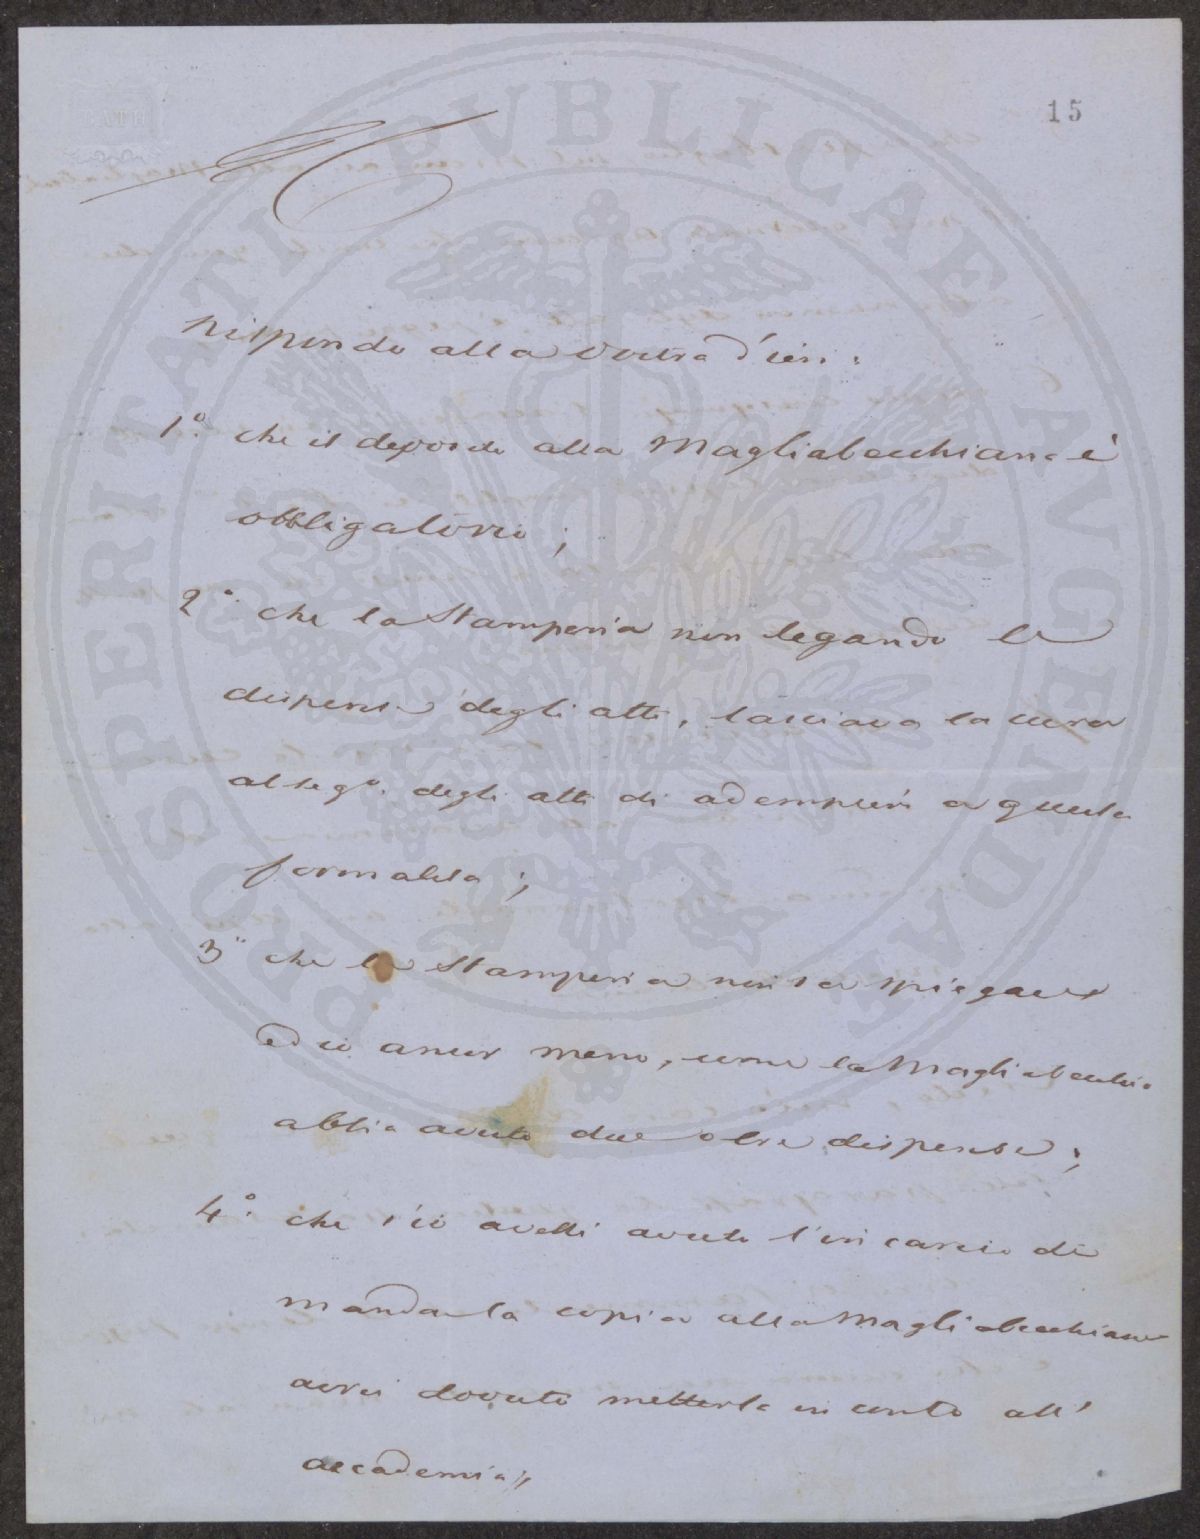 15
BATH
PROSPERITATI PVBLICAE AVGENDAE
Rispondo alla vostra d'ieri:
1°. che il deposito alla Magliabecchiana è
obbligatorio;
2°. che la Stamperia non legando le
dispense degli atti, lasciava la cura
al seg°. degli atti di adempiere a questa
formalità;
3° che la Stamperia non sa spiegare
ed io ancor meno, come la Magliabecchia
abbia avuto due o tre dispense;
4°. che s'io avessi avuto l'incarico di
mandar la copia alla Magliabecchiana
avrei dovuto metterla in conto all'
accademia;